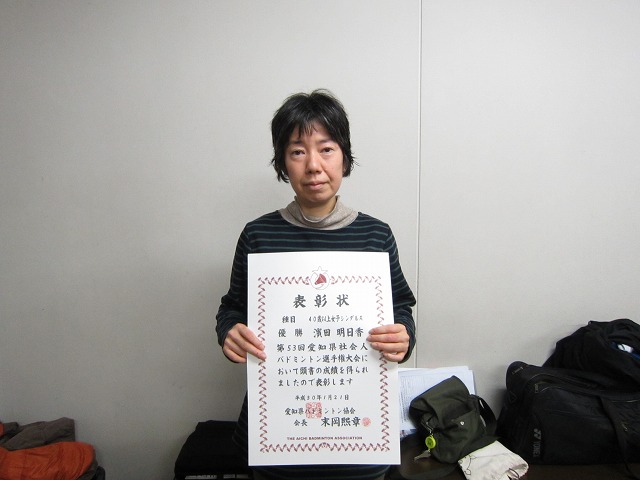 表彰状
種目 40歳以上女子シングルス
優勝 濱田 明日香
第53回愛知県社会人
バドミントン選手権大会に
おいて頭書の成績を得られ
ましたので表彰します
平成30年1月21日
愛知県バドミントン協会
会長 末岡熙章
THE AICHI BADMINTON ASSOCIATION
YONEX